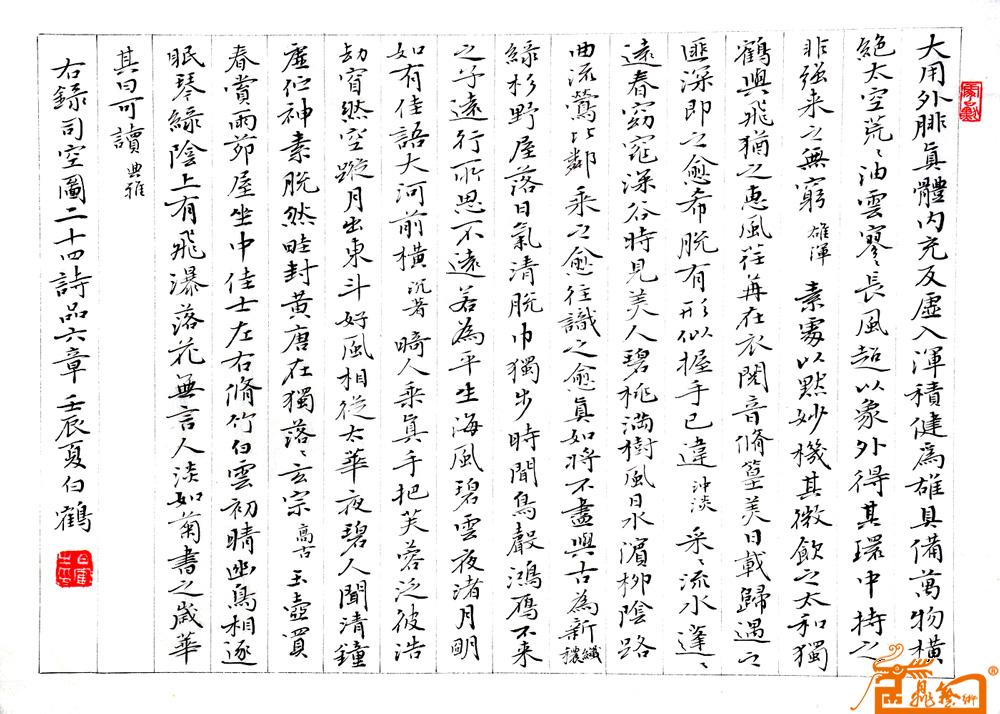 大用外腓真體內充反虛入渾積健為雄具備萬物橫
絕太空荒〻油雲寥〻長風超以象外得其環中持之
非强来之無窮 雄渾 素處以默妙機其微飲之太和獨
鶴與飛猶之惠風荏苒在衣閱音脩篁美曰載歸遇之
匪深即之愈希脫有形似握手已違 沖淡 采〻流水蓬〻
遠春窈窕深谷時見美人碧桃滿樹風日水濱柳陰路
曲流鶯比鄰乘之愈往識之愈真如將不盡與古為新 纖穠
綠杉野屋落日氣清脫巾獨步時聞鳥聲鴻雁不来
之子遠行所思不遠若為平生海風碧雲夜渚月明
如有佳語大河前橫 沉著 畸人乘真手把芙蓉泛彼浩
劫窅然空蹤月出東斗好風相從太華夜碧人聞清鐘
虛佇神素脫然畦封黃唐在獨落〻玄宗 高古 玉壺買
春賞雨茆屋坐中佳士左右脩竹白雲初晴幽鳥相逐
眠琴綠陰上有飛瀑落花無言人淡如菊書之歲華
其曰可讀 典雅
右錄司空圖二十四詩品六章 壬辰夏白鶴